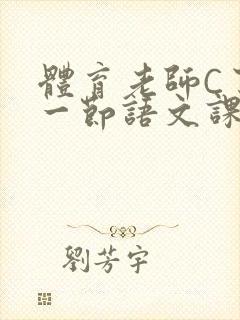 體育老師C
一節語文課
劉芳宇